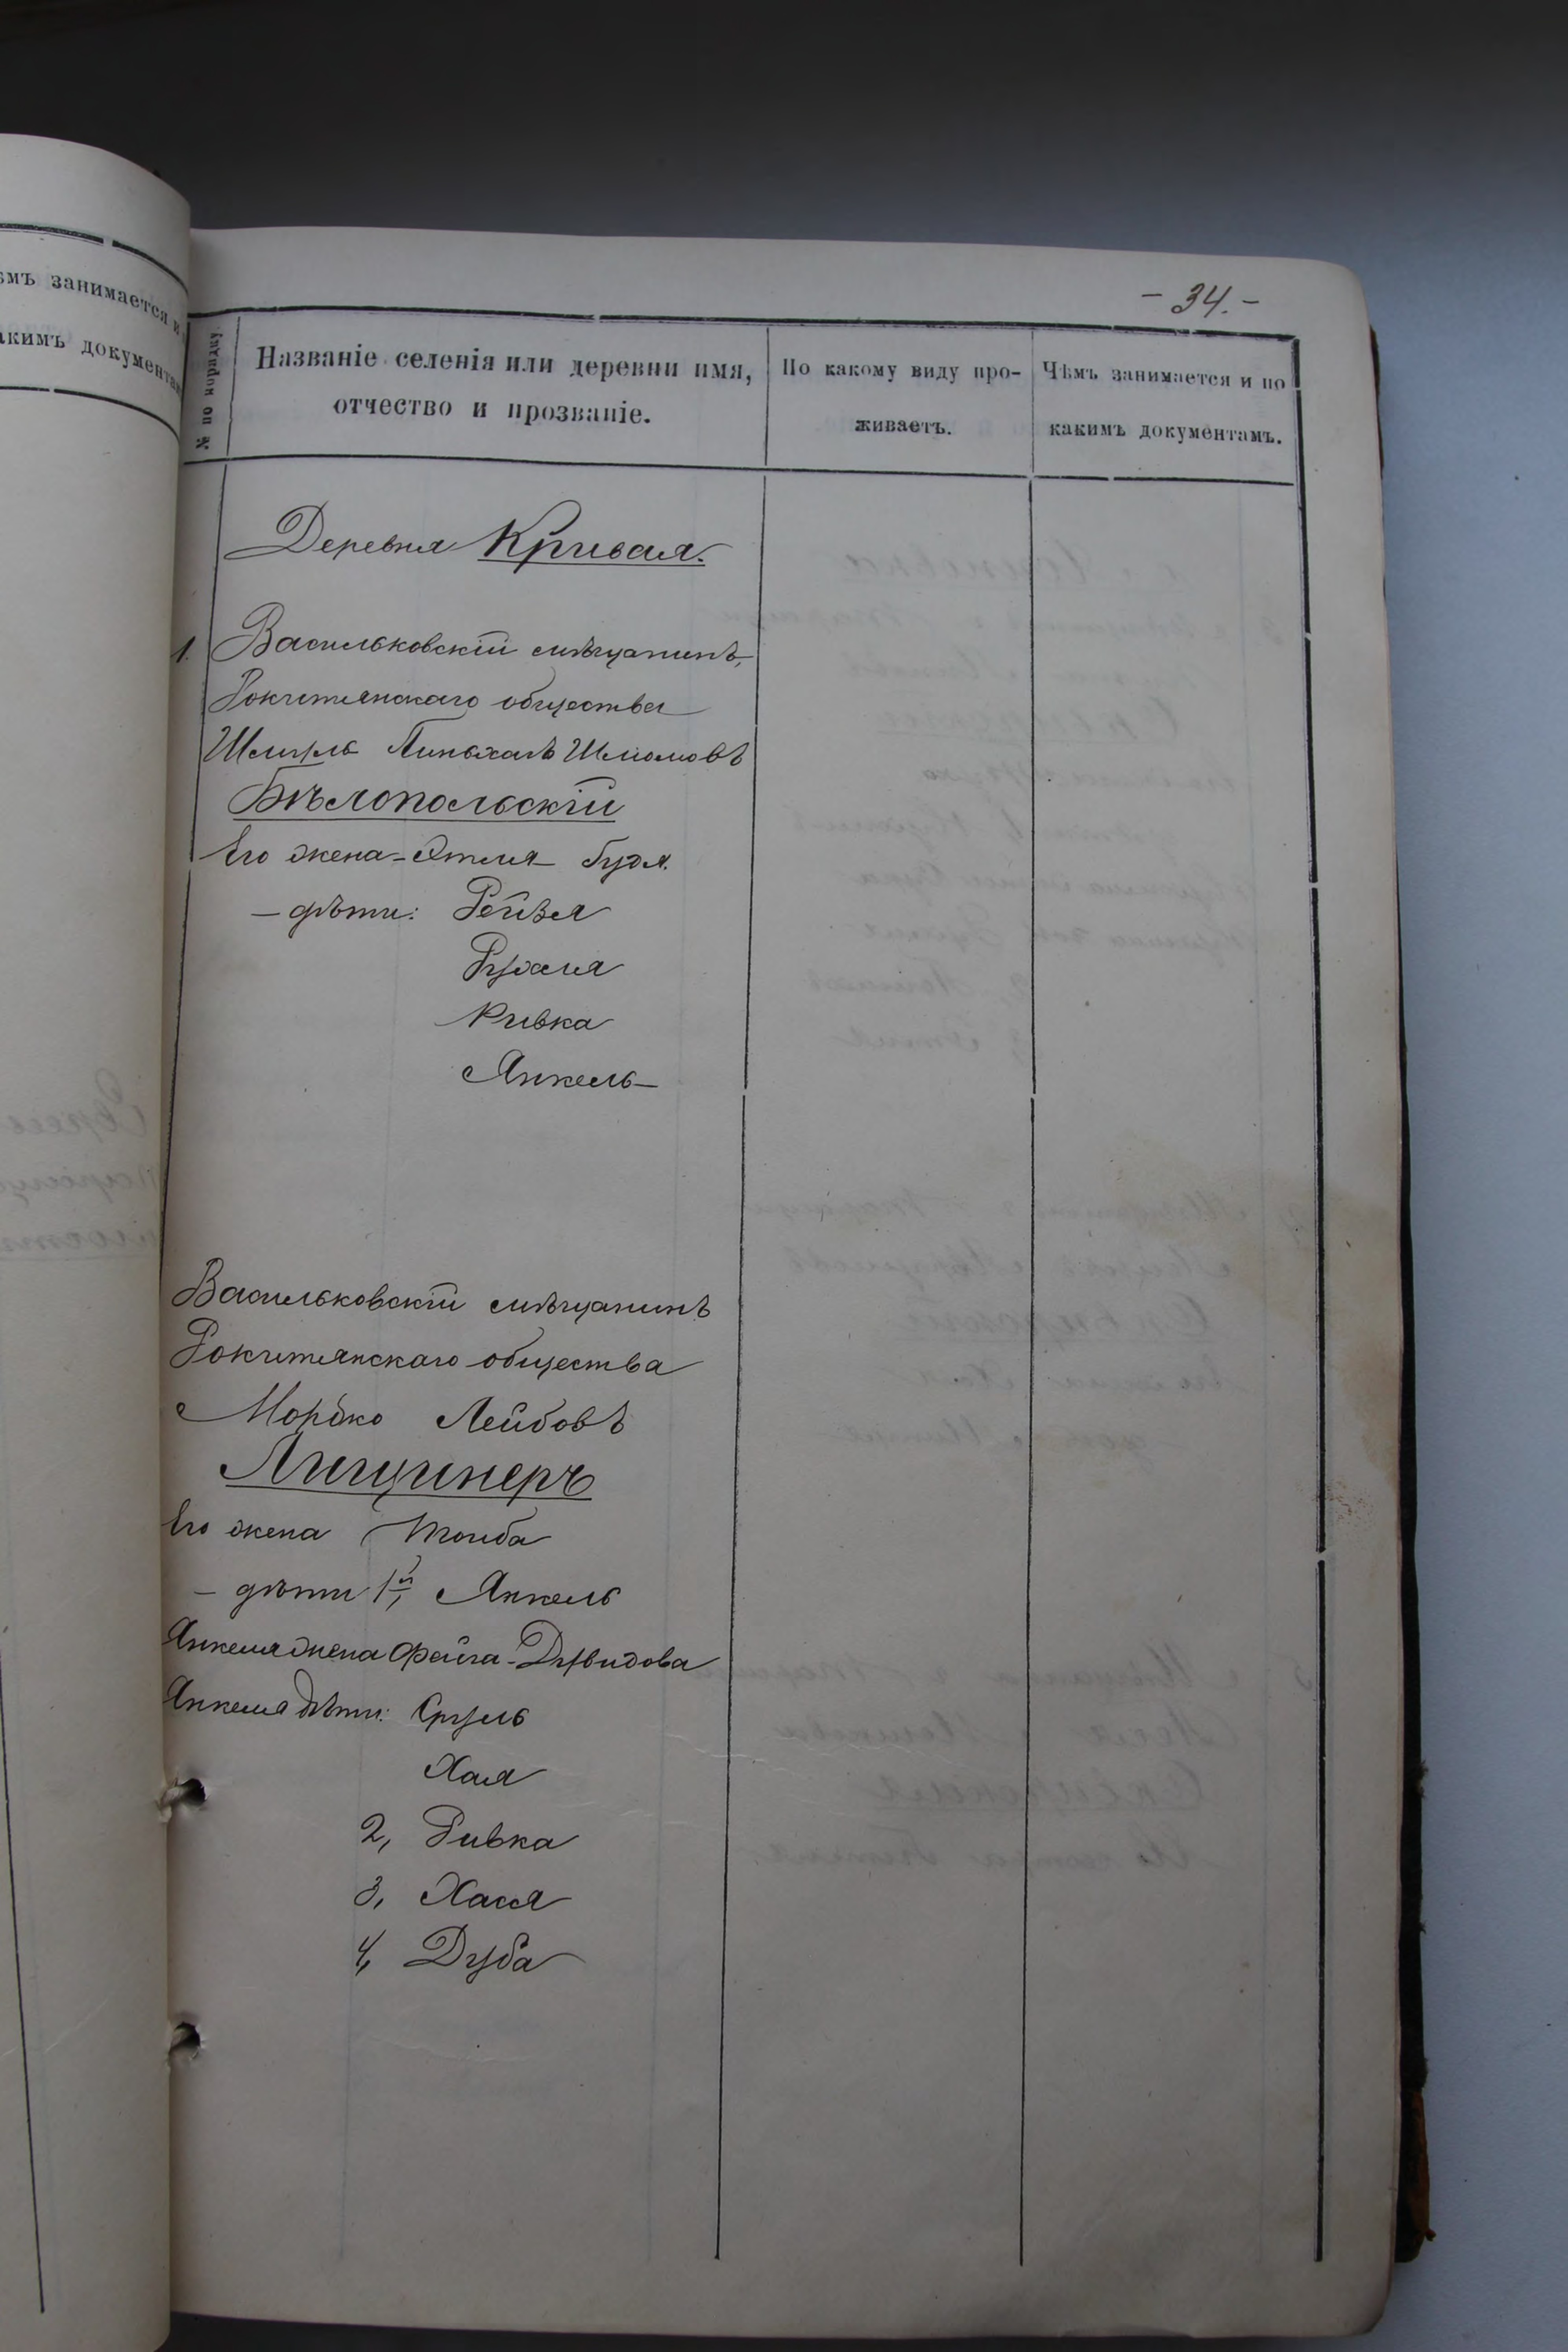 - 34. -
ѣмъ занимается и
акимъ документам
№ по порядку
Названіе селенія или деревни имя,
отчество и прозваніе.
По какому виду про-
живаетъ.
Чѣмъ занимается и по
какимъ документамъ.
Деревня Кривая.
1. Васильковскій мѣщанинъ,
Рокитянскаго общества
Шмуль Пиньхасъ Шліомовъ
Бѣлопольскій
Его жена - Этля Бузя.
— дѣти: Рейзя
Рухля
Ривка
Янкель
Васильковскій мѣщанинъ
Рокитянскаго общества
Мордко Лейбовъ
Лищинеръ
Его жена Тойба
— дѣти 1й, Янкель
Янкеля жена Фейга - Дувидова
Янкеля дѣти: Сруль
Хая
2, Ривка
3, Хася
4, Дуба